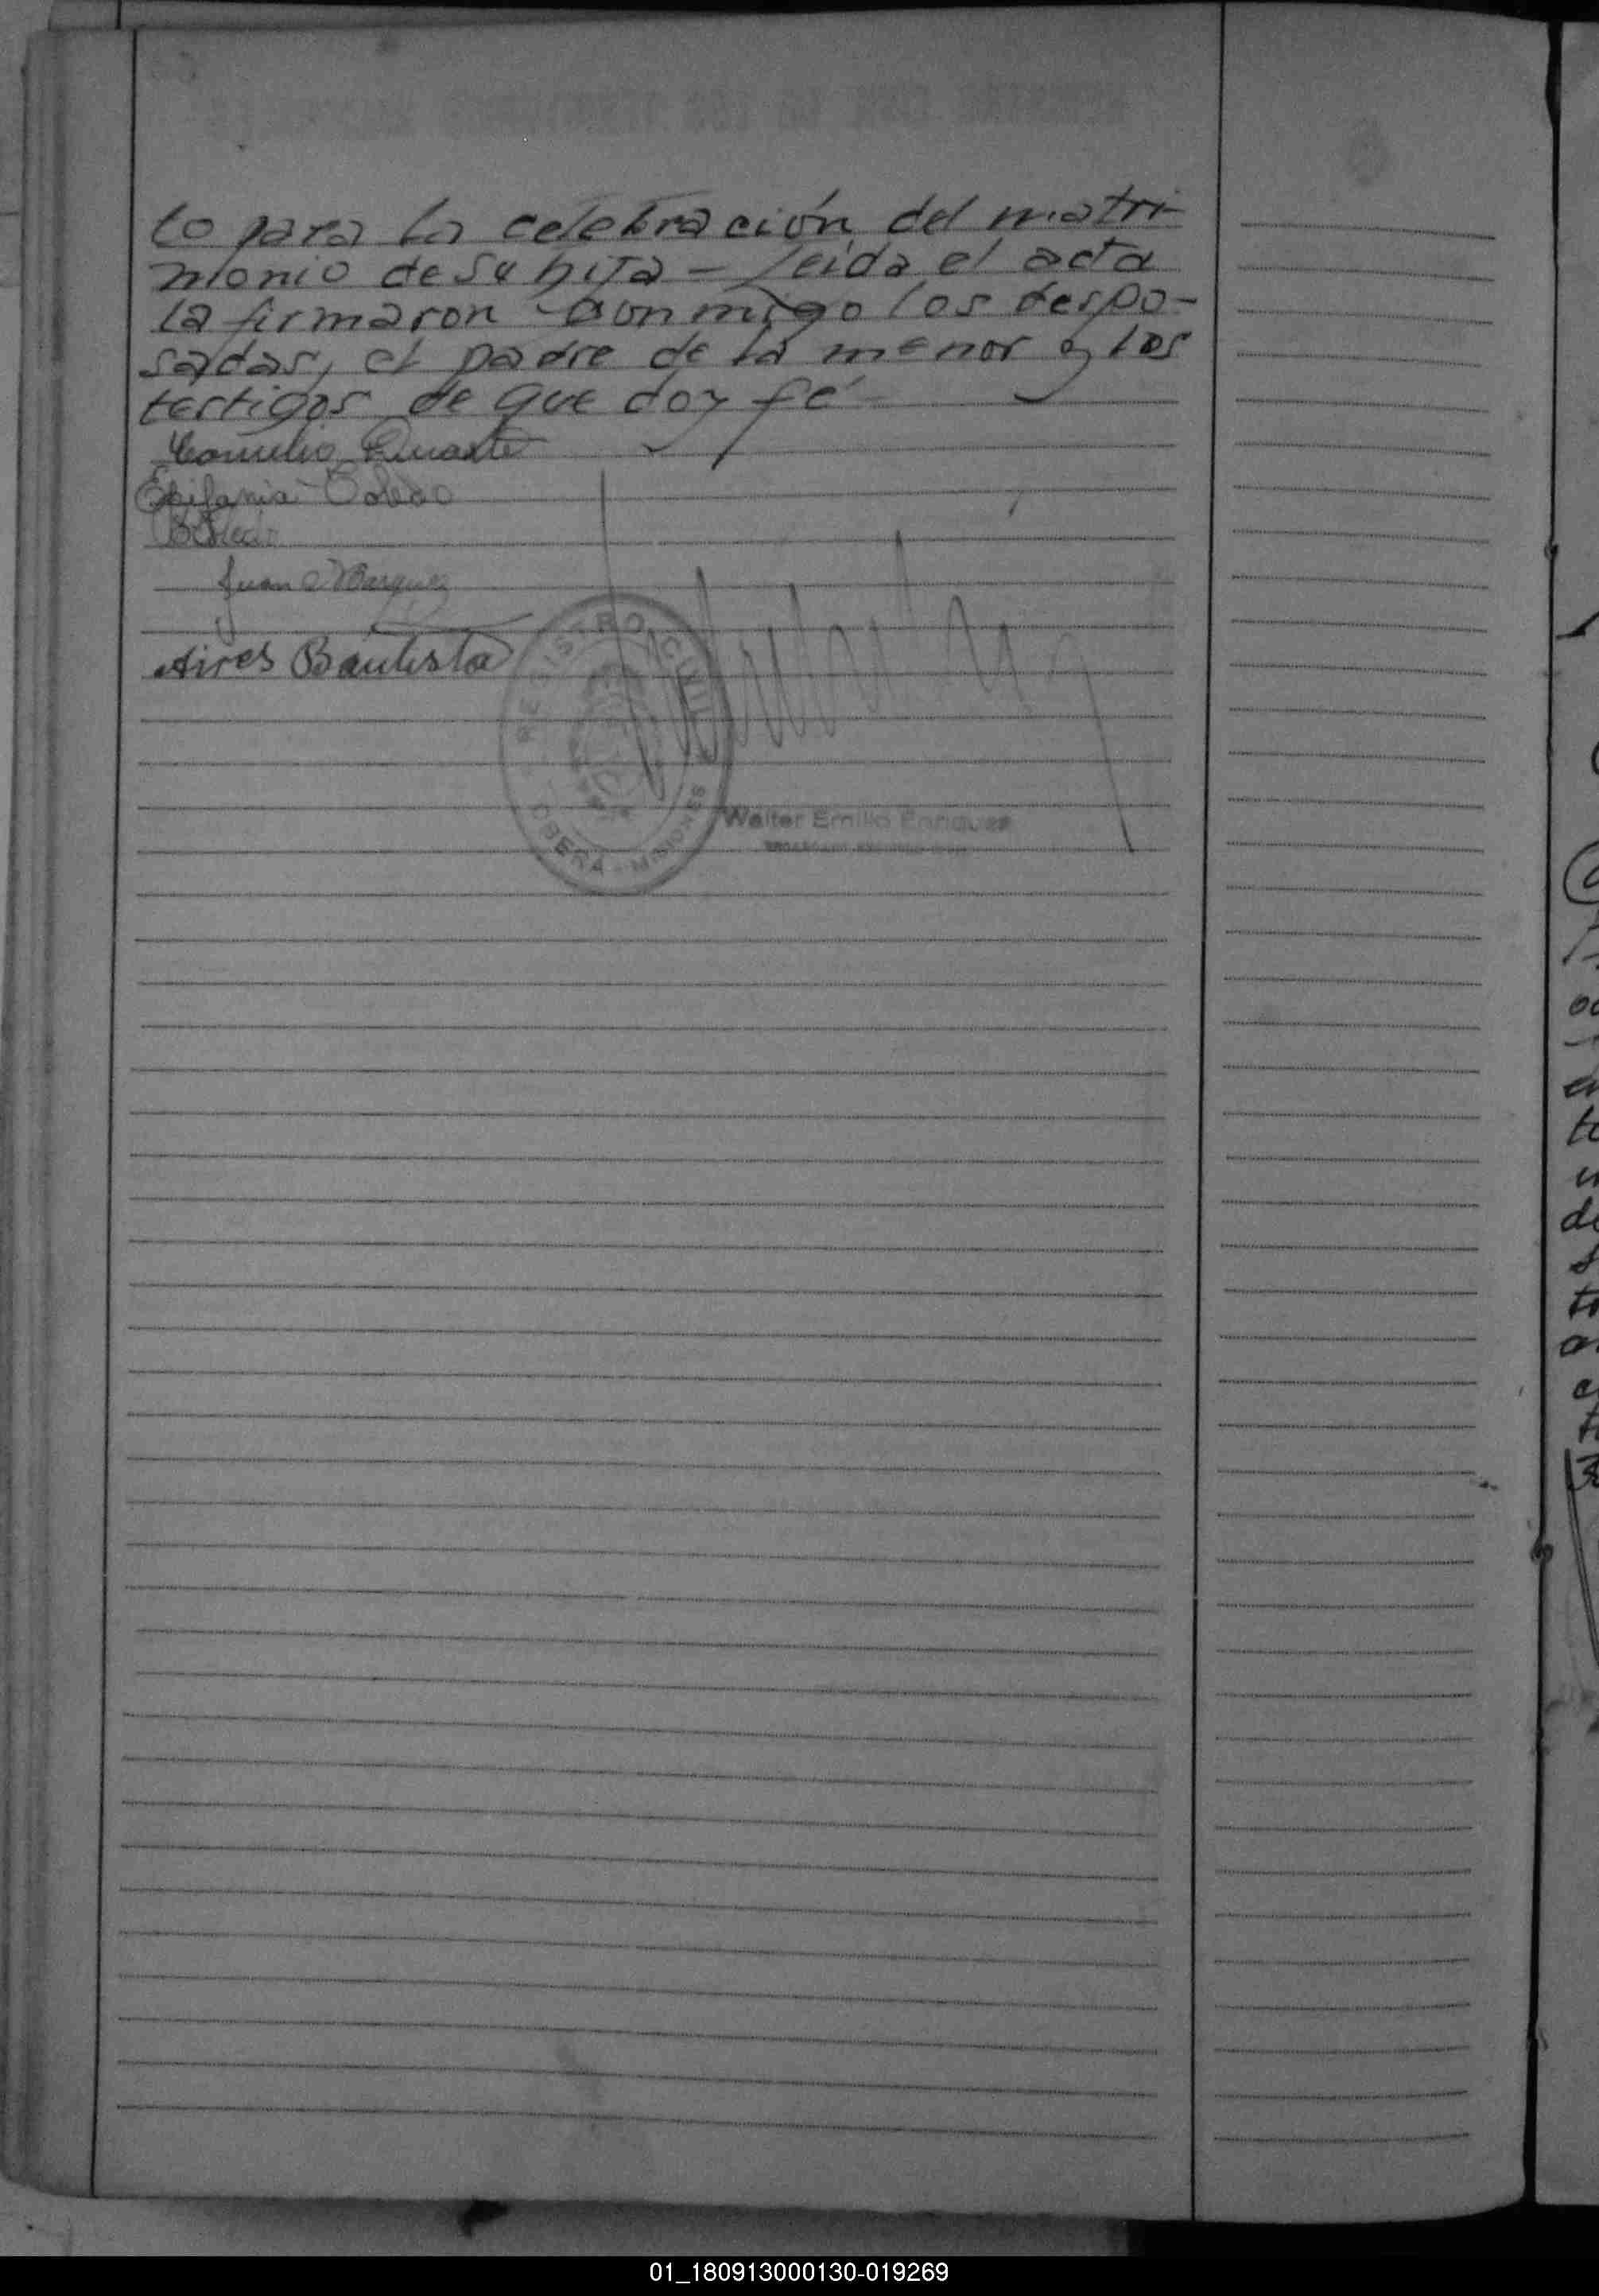 to para la celebración del matri-
monio de su hija - leída el acta
la firmaron conmigo los despo-
sadas, el padre de la menor y los
testigos de que doy fé
Cornelio Duarte
Epifania Toledo
B Toledo
Juan Marquez
Aires Bautista
REGISTRO CIVIL
OBERA - MISIONES
Walter Emilio Enriquez
01_180913000130-019269